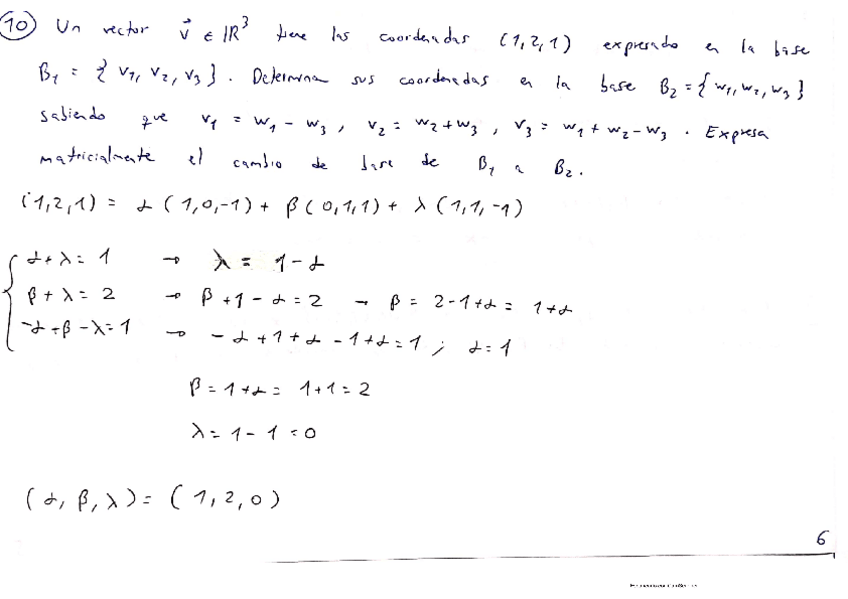 10 Un vector v⃗ ∈ ℝ³ tiene las coordenadas (1,2,1) expresado en la base
B₁ = {v₁, v₂, v₃}. Determina sus coordenadas en la base B₂ = {w₁, w₂, w₃}
sabiendo que v₁ = w₁ - w₃, v₂ = w₂ + w₃, v₃ = w₁ + w₂ - w₃. Expresa
matricialmente el cambio de base de B₁ a B₂.
(1,2,1) = α (1,0,-1) + β (0,1,1) + λ (1,1,-1)
α + λ = 1 → λ = 1 - α
β + λ = 2 → β + 1 - α = 2 → β = 2 - 1 + α = 1 + α
-α + β - λ = 1 → -α + 1 + α - 1 + α = 1; α = 1
β = 1 + α = 1 + 1 = 2
λ = 1 - 1 = 0
(α, β, λ) = (1, 2, 0)
6